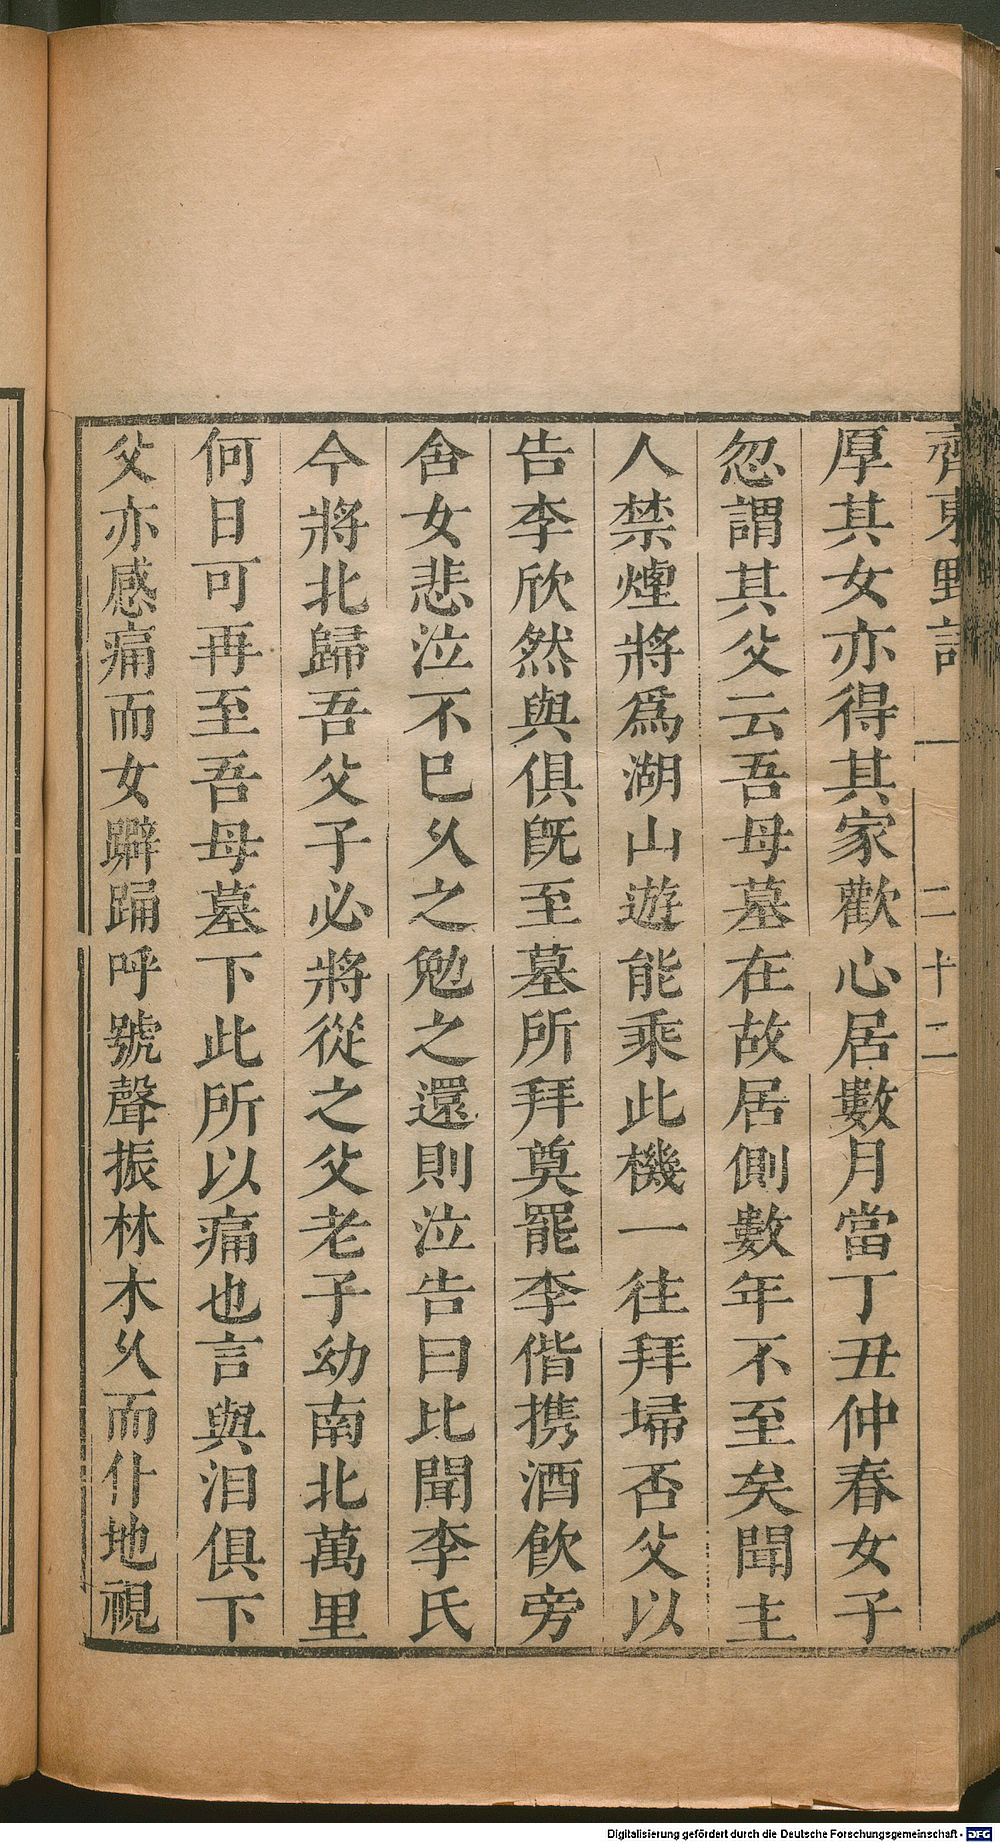 齊東野語 一 二十二
厚其女亦得其家歡心居數月當丁丑仲春女子
忽謂其父云吾母墓在故居側數年不至矣聞主
人禁煙將爲湖山遊能乘此機一往拜埽否父以
告李欣然與俱旣至墓所拜奠罷李偕携酒飮旁
舍女悲泣不已久之勉之還則泣告曰比聞李氏
今將北歸吾父子必將從之父老子幼南北萬里
何日可再至吾母墓下此所以痛也言與泪俱下
父亦感痛而女躃踊呼號聲振林木久而仆地視
Digitalisierung gefördert durch die Deutsche Forschungsgemeinschaft - DFG